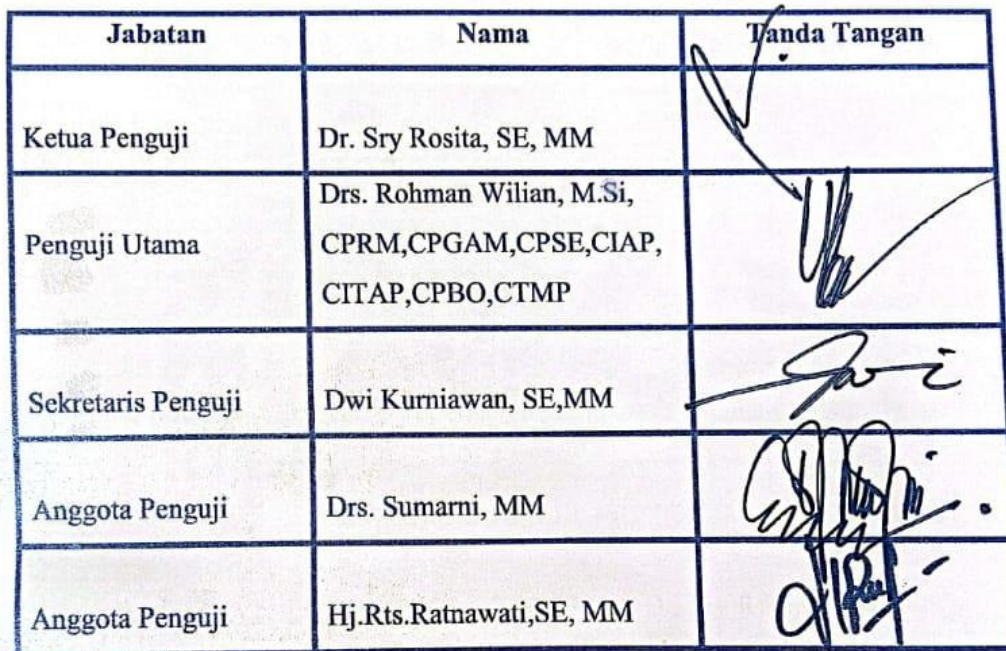 Jabatan Nama Tanda Tangan
Ketua Penguji Dr. Sry Rosita, SE, MM
Drs. Rohman Wilian, M.Si,
Penguji Utama CPRM,CPGAM,CPSE,CIAP,
CITAP,CPBO,CTMP
Sekretaris Penguji Dwi Kurniawan, SE,MM
Anggota Penguji Drs. Sumarni, MM
Anggota Penguji Hj.Rts.Ratnawati,SE, MM